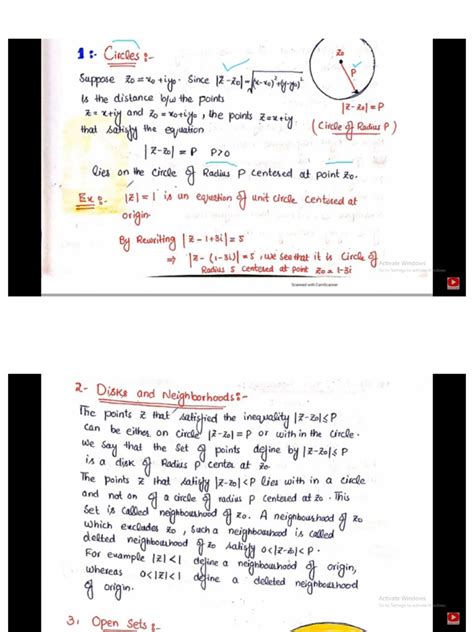 1:- Circles:-
Suppose z₀ = x₀+iy₀. Since |z-z₀|=√(x-x₀)²+(y-y₀)²
is the distance b/w the points
z=x+iy and z₀=x₀+iy₀, the points z=x+iy
that satisfy the equation
|z-z₀|=P P>0
lies on the Circle of Radius P centered at point z₀.
z₀
P
|z-z₀|=P
(Circle of Radius P)
Ex:- |z|=1 is un equation of unit circle centered at
origin.
By Rewriting |z-1+3i|=5
⇒ |z-(1-3i)|=5, we see that it is Circle of
Radius 5 centered at point z₀=1-3i
Scanned with CamScanner
Activate Windows
Go to Settings to activate Windows.
2- Disks and Neighborhoods:-
The points z that satisfied the inequality |z-z₀|≤P
can be either on circle |z-z₀|=P or within the circle.
we say that the set of points define by |z-z₀|≤P
is a disk of Radius P center at z₀.
The points z that satisfy |z-z₀|<P lies with in a circle
and not on of a circle of radius P centered at z₀. This
set is called neighbourhood of z₀. A neighbourhood of z₀
which excludes z₀, such a neighbourhood is called
delted neighbourhood of z₀ satisfy 0<|z-z₀|<P.
For example |z|<1 define a neighbourhood of origin,
whereas 0<|z|<1 define a deleted neighbourhood
of origin.
Activate Windows
Go to Settings to activate Windows.
3: Open Sets:-